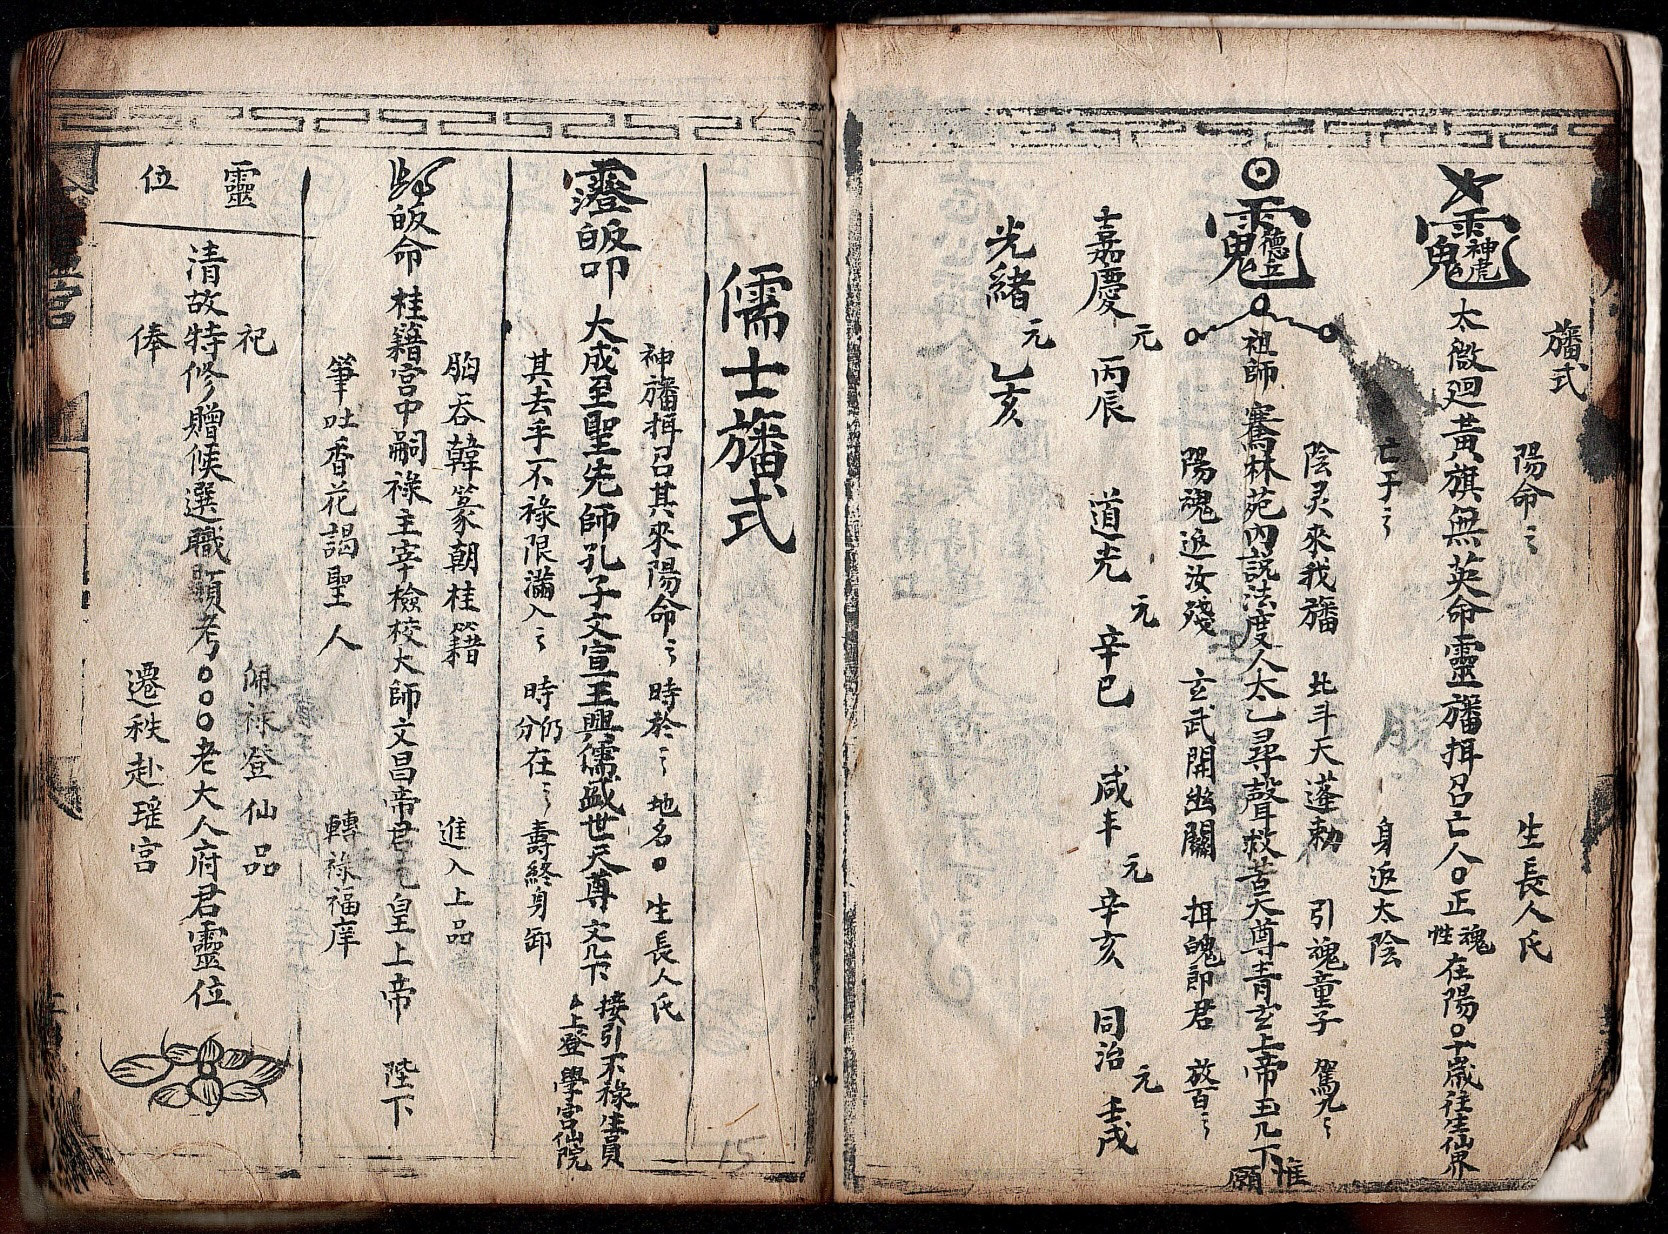 旛式
陽命〻 生長人氏
神虎
太微迴黃旗無英命靈旛揖召亡人〇正魂性在陽〇十歲往生仙界
亡于〻 身返太陰
陰灵來我旛 北斗天蓬勅 引魂童子 駕兄〻
德立
祖師 騫林苑內説法度人太乙尋聲救苦天尊青玄上帝玉几下
惟願
陽魂返汝殘 玄武開幽關 揖魄郎君 放百〻
嘉慶元丙辰 道光元辛巳 咸丰元辛亥 同治元壬戌
光緒元乙亥
儒士旛式
神旛揖召其來陽命〻 時於〻 地名〇 生長人氏
皈叩 大成至聖先師孔子文宣王興儒盛世天尊 文几下 接引不祿生員 上登學宮仙院
其去乎一不祿限滿入〻 時仍分在〻 壽終身卸
胸吞韓篆朝桂籍 進入上品
皈命 桂籍宮中嗣祿主宰檢校大師文昌帝君 皇上帝 陛下
筆吐香花謁聖人 轉祿福庠
靈位
祀 佩祿登仙品
清故特修贈候選職顯考〇〇〇老大人府君靈位
俸 遷秩赴瑤宮
15